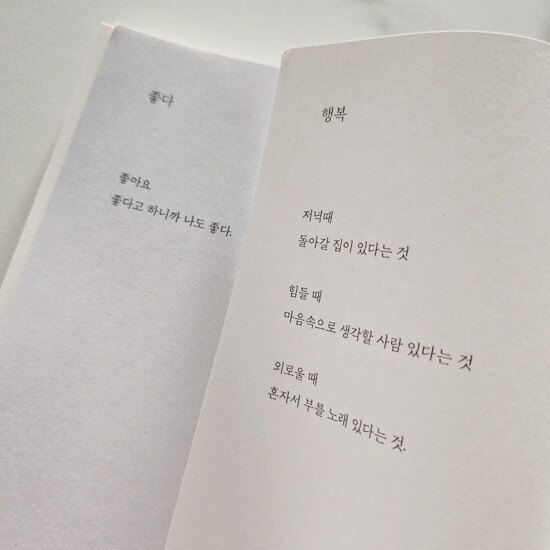 좋다
좋아요
좋다고 하니까 나도 좋다.
행복
저녁때
돌아갈 집이 있다는 것
힘들 때
마음속으로 생각할 사람 있다는 것
외로울 때
혼자서 부를 노래 있다는 것.